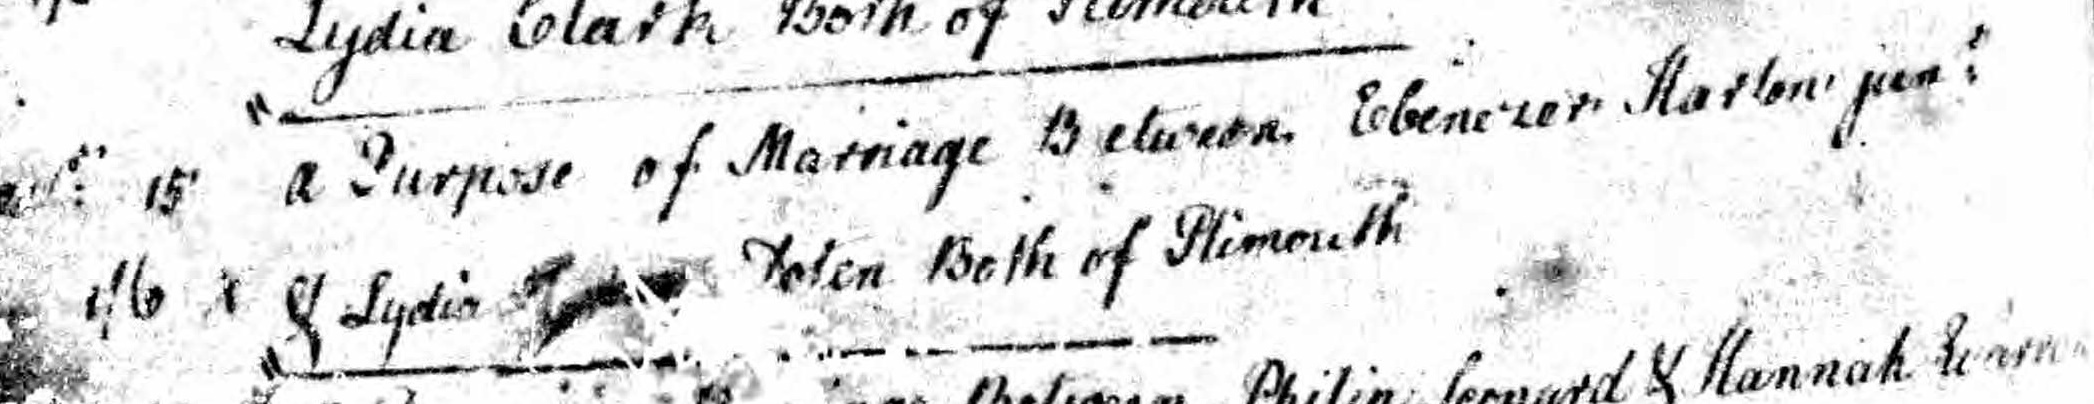 Lydia Clark Both of Plimouth
15 a Purpose of Marriage Between Ebenezer Harlow junr
1/6 x & Lydia Both of Plimouth
Between Philip Leonard & Hannah